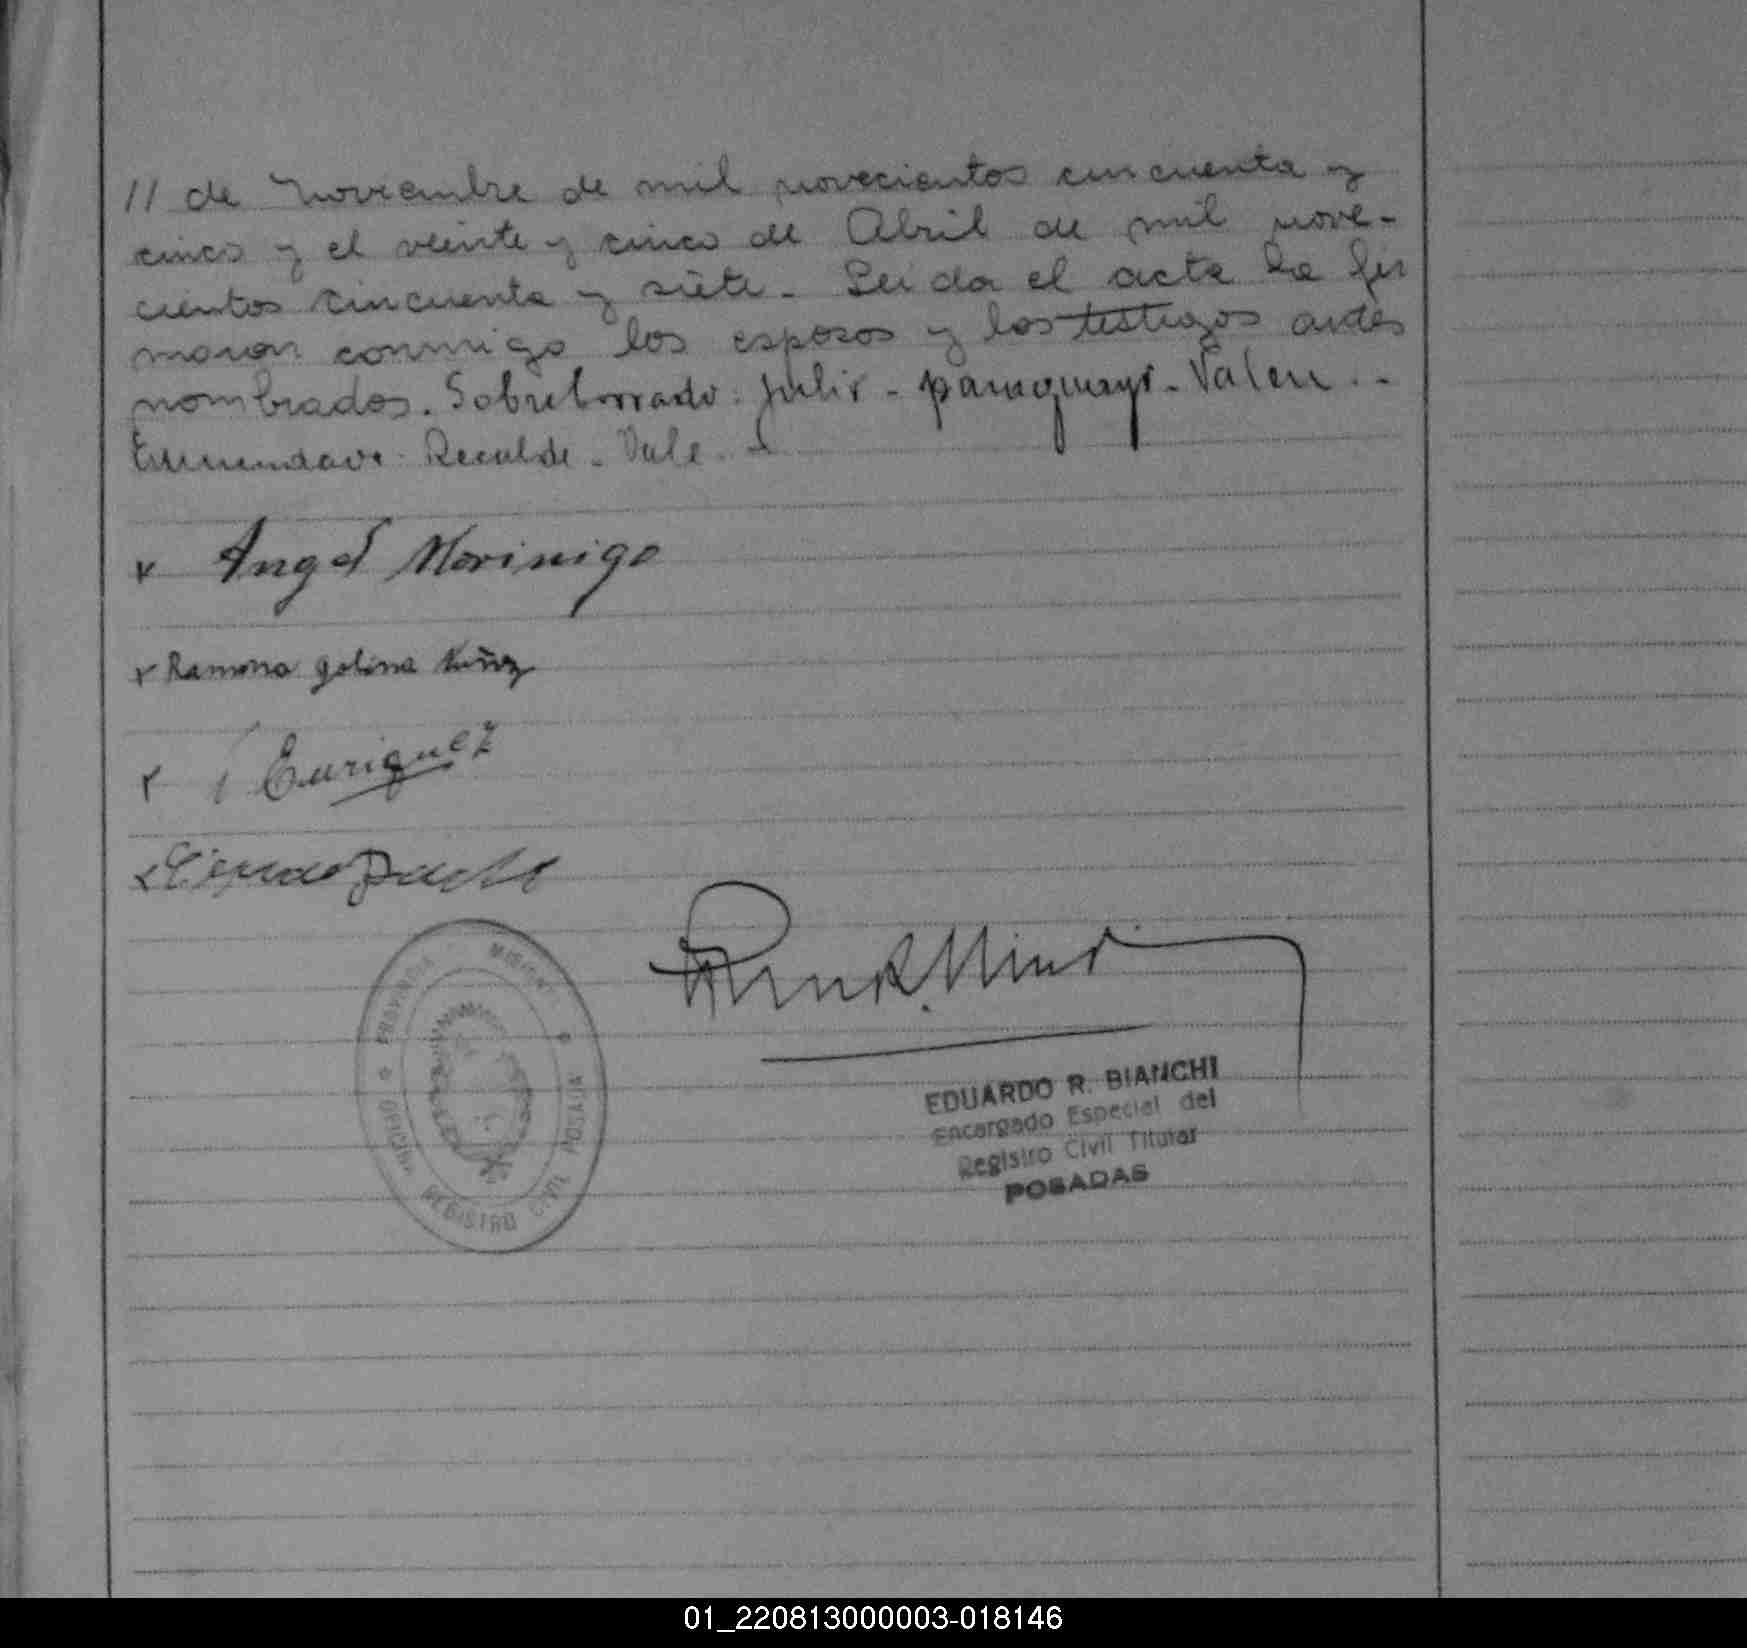 // de Noviembre de mil novecientos cincuenta y
cinco y el veinte y cinco de Abril de mil nove-
cientos cincuenta y siete - Leida el acta la fir
maron conmigo los esposos y los testigos antes
nombrados. Sobreborrado: julio - paraguayo - Valen. -
Enmendado: Recalde - Vale. -
x Angel Morinigo
x Ramona galina Nuñez
x Enriquez
x
PROVINCIA MISIONES
OFICINA REGISTRO CIVIL POSADA
EDUARDO R. BIANCHI
Encargado Especial del
Registro Civil Titular
POSADAS
01_220813000003-018146